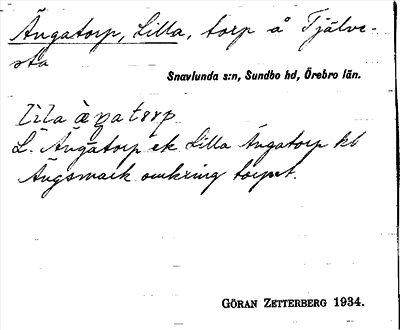 Ängatorp, Lilla, torp å Tjälve-
sta
Snavlunda s:n, Sundbo hd, Örebro län.
lila ängatorp
L. Ängatorp ek Lilla Ängatorp kb
Ängsmark omkring torpet.
GÖRAN ZETTERBERG 1934.